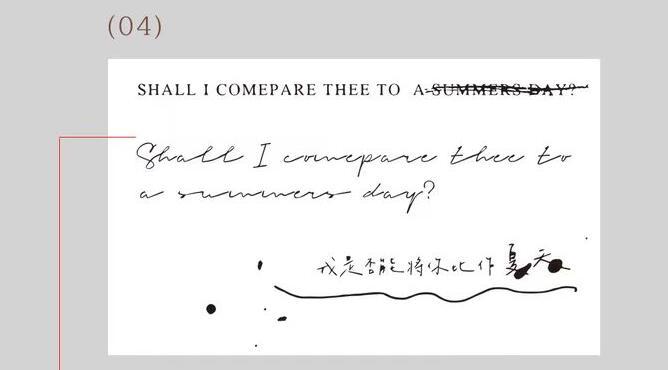 (04)
SHALL I COMEPARE THEE TO A SUMMERS DAY?
Shall I comepare thee to
a summers day?
我是否能将你比作夏天